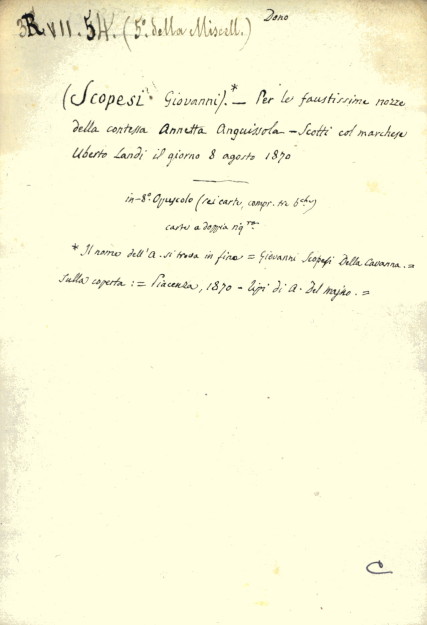 Dono
R. VII. 54. (5º della Miscell.)
(Scopesi Giovanni).* — Per le faustissime nozze
della contessa Annetta Anguissola – Scotti col marchese
Uberto Landi il giorno 8 agosto 1870
in-8º. Opuscolo (sei carte, compr. tre b.che)
carte a doppia rigra.
* Il nome dell'A. si trova in fine = Giovanni Scopesi Della Cavanna. =
sulla coperta : = Piacenza, 1870 – tipi di A. Del Majno. =
C